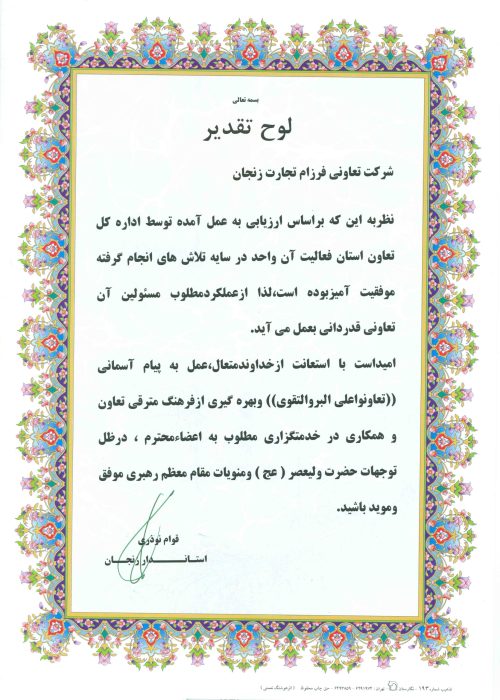 بسمه تعالی
لوح تقدیر
شرکت تعاونی فرزام تجارت زنجان
نظربه این که براساس ارزیابی به عمل آمده توسط اداره کل
تعاون استان فعالیت آن واحد در سایه تلاش های انجام گرفته
موفقیت آمیزبوده است،لذا ازعملکردمطلوب مسئولین آن
تعاونی قدردانی بعمل می آید.
امیداست با استعانت ازخداوندمتعال،عمل به پیام آسمانی
((تعاونواعلی البروالتقوی)) وبهره گیری ازفرهنگ مترقی تعاون
و همکاری در خدمتگزاری مطلوب به اعضاءمحترم ، درظل
توجهات حضرت ولیعصر ( عج ) ومنویات مقام معظم رهبری موفق
وموید باشید.
قوام نوذری
استاندار زنجان